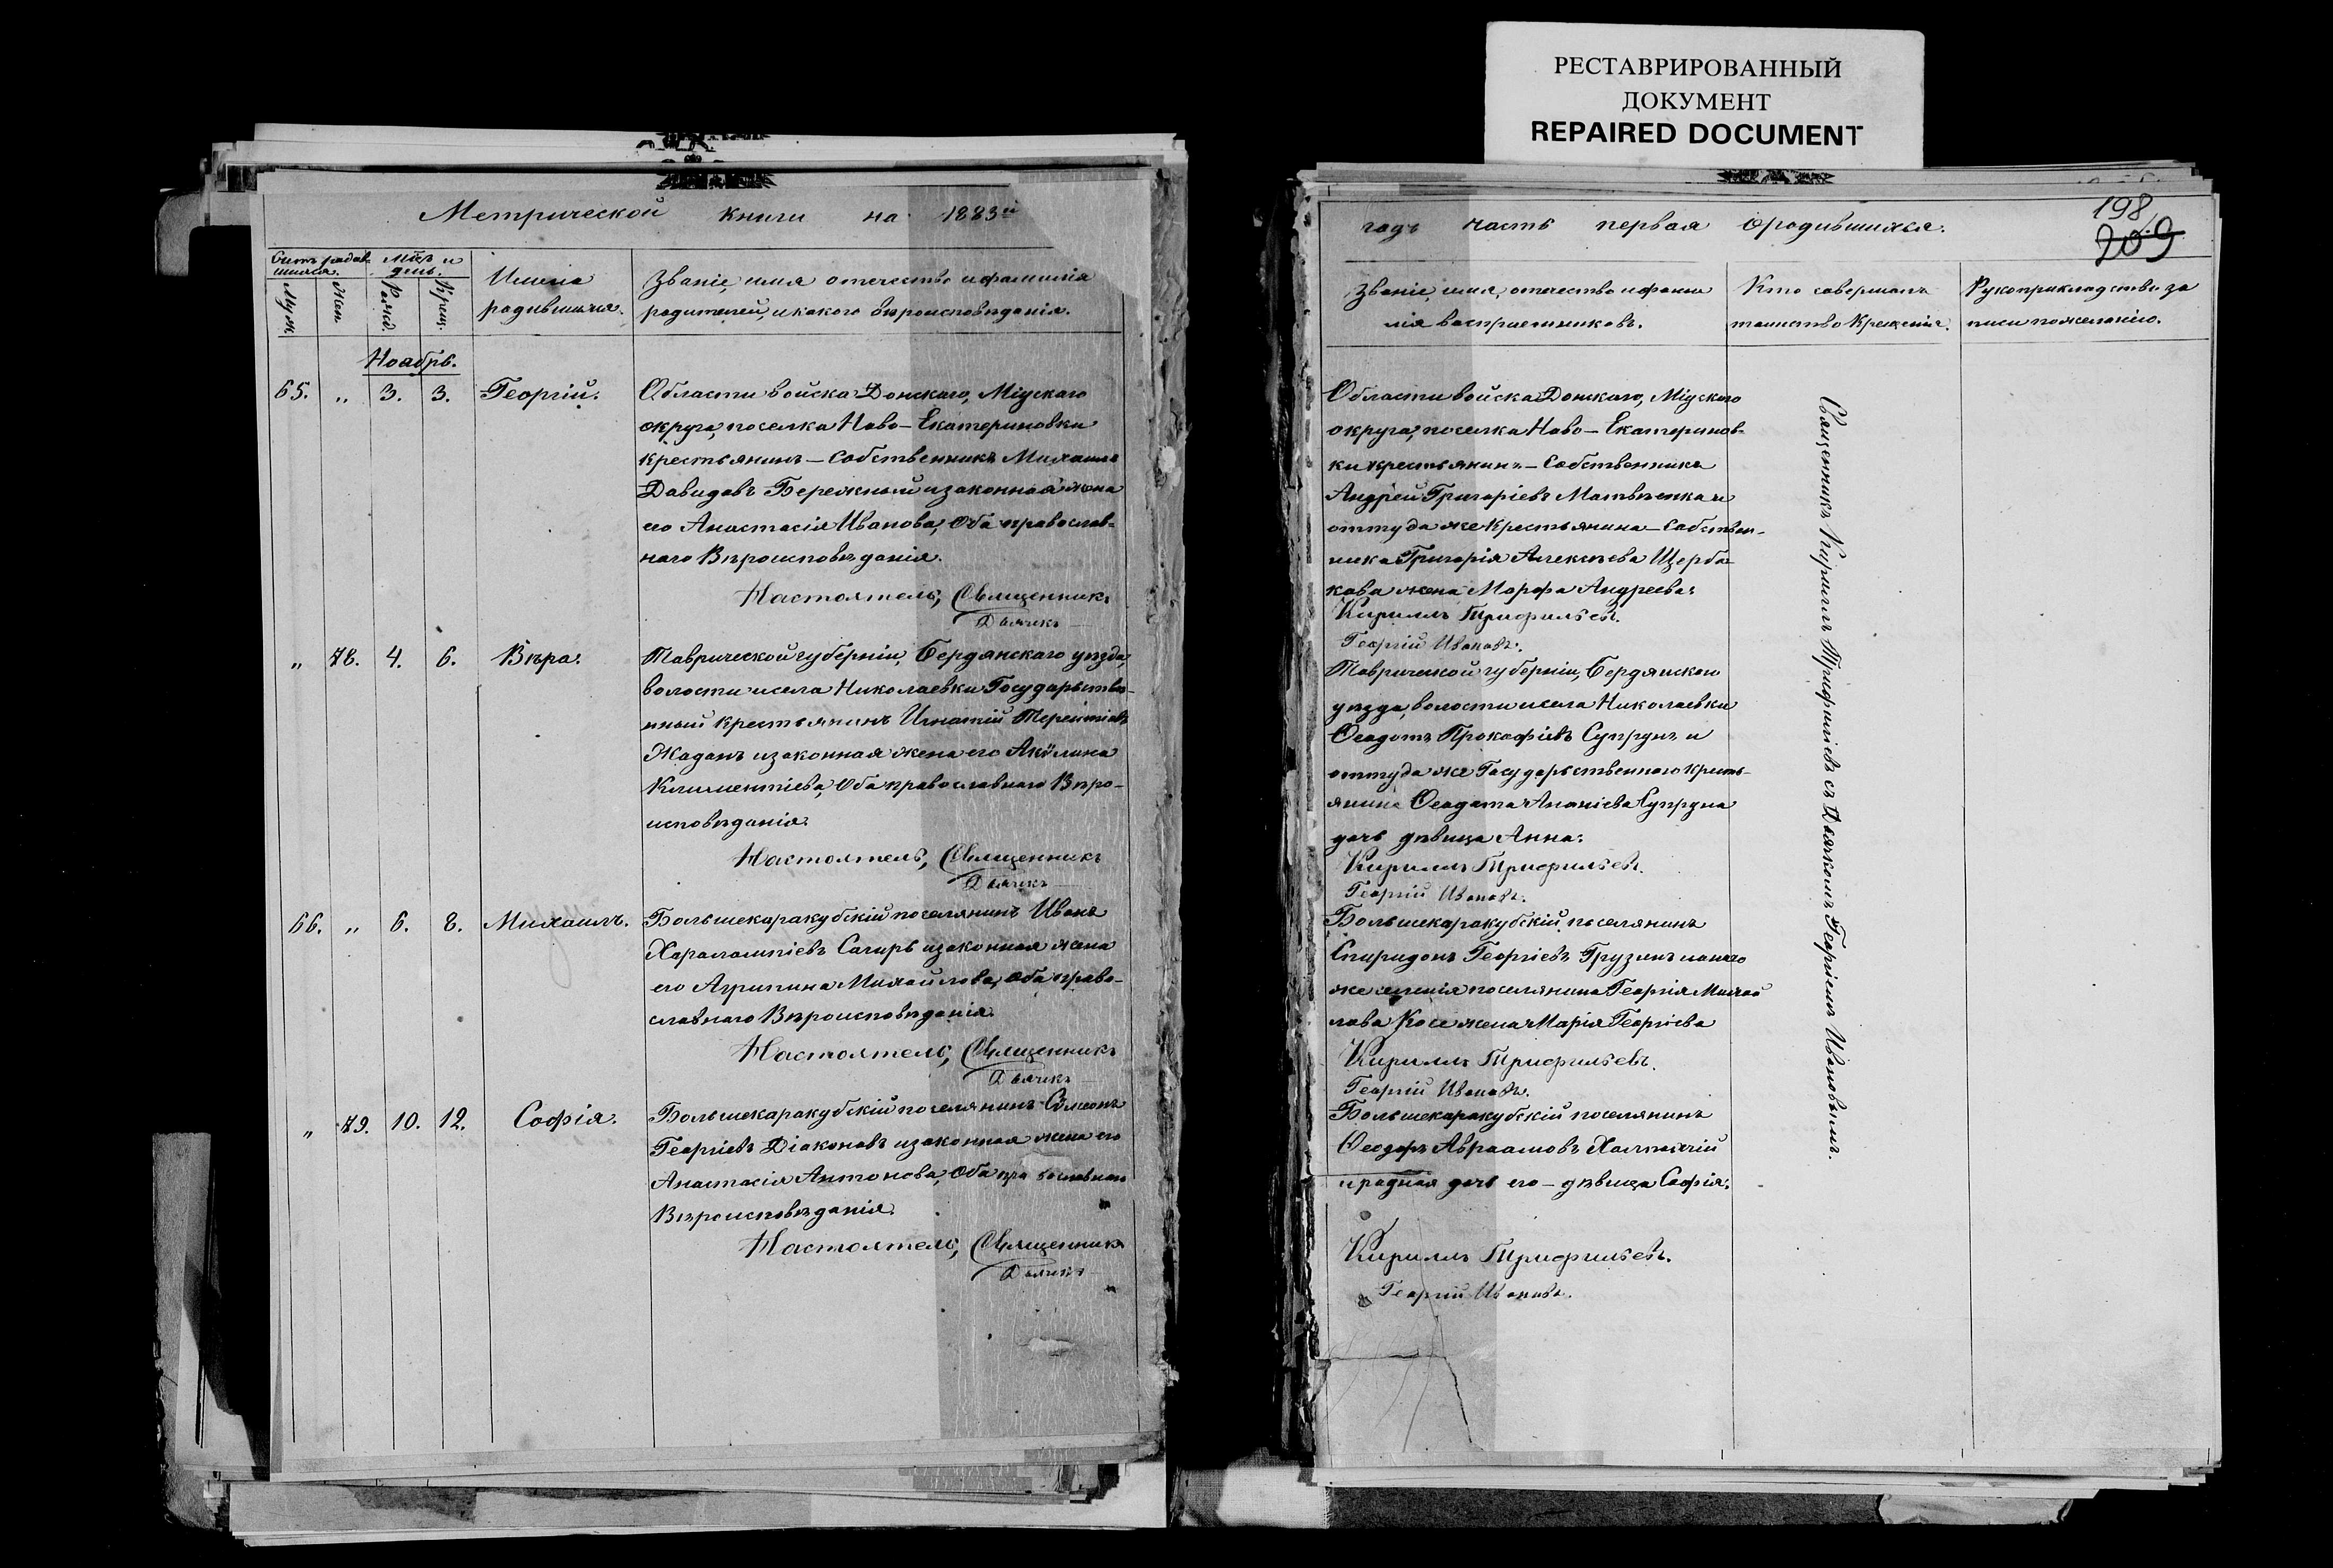 РЕСТАВРИРОВАННЫЙ
ДОКУМЕНТ
REPAIRED DOCUMENT
Метрической книги на 1883й
Счетъ родив-
шихся.
Муж
Жен
Мѣс. и
день.
Рожд.
Крещ.
Имена
родившихся.
Званіе, имя отечество и фамилія
родителей, и какого вѣроисповѣданія.
Ноябрь.
65. „ 3. 3. Георгій.
Области войска Донскаго, Міускаго
округа, поселка Ново-Екатериновки
крестьянинъ-собственникъ Михаилъ
Давидовъ Бережный и законная жена
его Анастасія Иванова, оба православ-
наго Вѣроисповѣданія.
Настоятель, Священникъ
Дьячекъ
„ 78. 4. 6. Вѣра.
Таврической губерніи, Бердянскаго уѣзда,
волости и села Николаевки Государьстве-
нный крестьянинъ Игнатій Терентіевъ
Жаданъ и законная жена его Акулина
Климентіева, оба православнаго Вѣро-
исповѣданія.
Настоятель, Священникъ
Дьячекъ
66. „ 6. 8. Михаилъ.
Большекаракубскій поселянинъ Иванъ
Харалампіевъ Сагиръ и законная жена
его Агрипина Михайлова, оба право-
славнаго Вѣроисповѣданія.
Настоятель, Священникъ
Дьячекъ
„ 79. 10. 12. Софія.
Большекаракубскій поселянинъ Симеонъ
Георгіевъ Діаконовъ и законная жена его
Анастасія Антонова, оба православнаго
Вѣроисповѣданія.
Настоятель, Священникъ
Дьячекъ
198
209
годъ часть первая о родившихся.
Званіе, имя, отечество и фами
лія воспріемниковъ.
Кто совершалъ
таинство Крещенія.
Рукоприкладство за
писи по желанію.
Области войска Донскаго, Міускаго
округа, поселка Ново-Екатеринов-
ки крестьянинъ-собственникъ
Андрей Григоріевъ Матвѣенка и
оттуда же крестьянина-собствен-
ника Григорія Алексѣева Щерба-
кова жена Марфа Андреева.
Кириллъ Трифильевъ.
Георгій Ивановъ.
Таврической губерніи, Бердянскаго
уѣзда, волости и села Николаевки
Ѳеодотъ Прокофіевъ Супрунъ и
оттуда же Государьственнаго кресть-
янина Ѳеодота Ананіева Супруна
дочь дѣвица Анна.
Кириллъ Трифильевъ.
Георгій Ивановъ.
Большекаракубскій поселянинъ
Спиридонъ Георгіевъ Грузинъ и онаго
же селенія поселянина Георгія Михай
лова Косе жена Марія Георгіева
Кириллъ Трифильевъ.
Георгій Ивановъ.
Большекаракубскій поселянинъ
Ѳеодоръ Авраамовъ Халпахчій
и родная дочь его - дѣвица Софія.
Кириллъ Трифильевъ.
Георгій Ивановъ.
Священникъ Кириллъ Трифиліевъ съ Дьячкомъ Георгіемъ Ивановымъ.